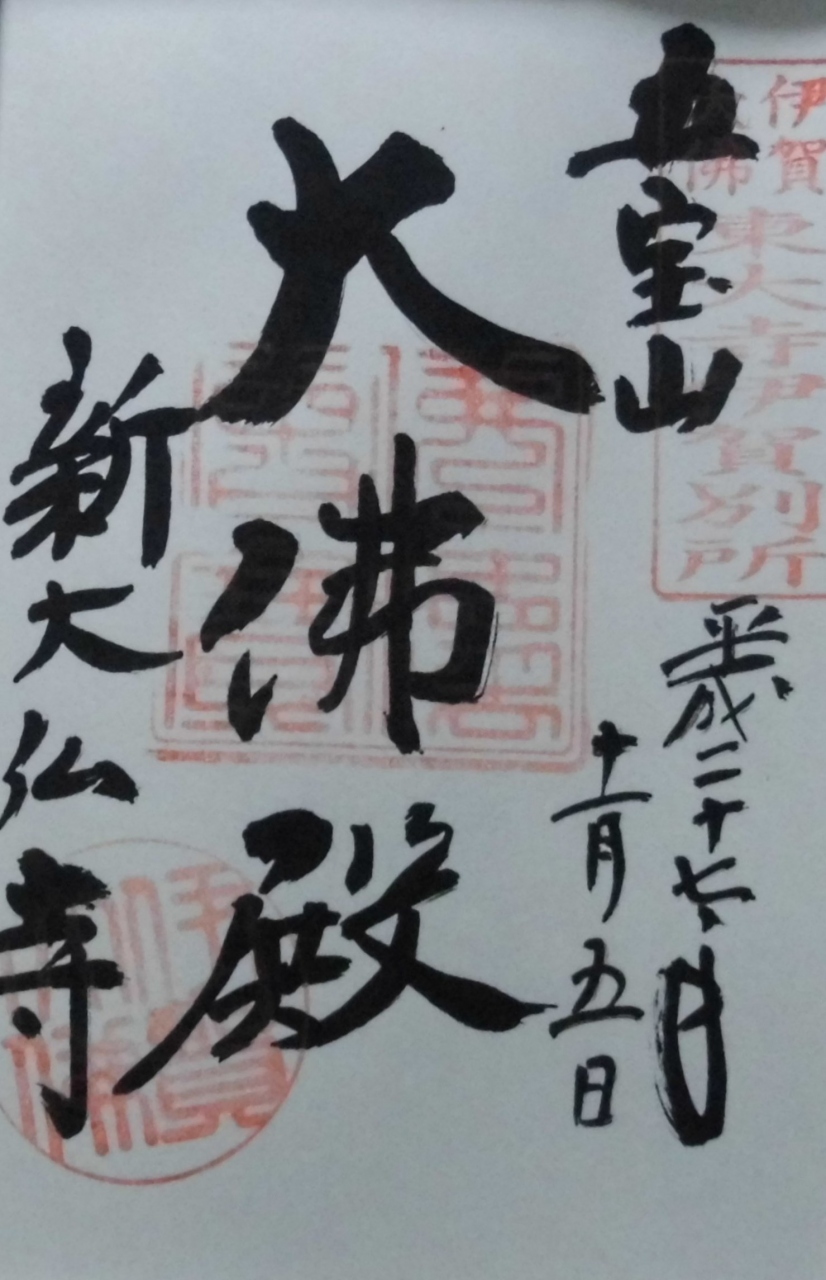 五宝山
伊賀
大佛
東大寺伊賀別所
平成二十七年
十一月五日
大佛殿
新大仏寺
伊賀
大佛